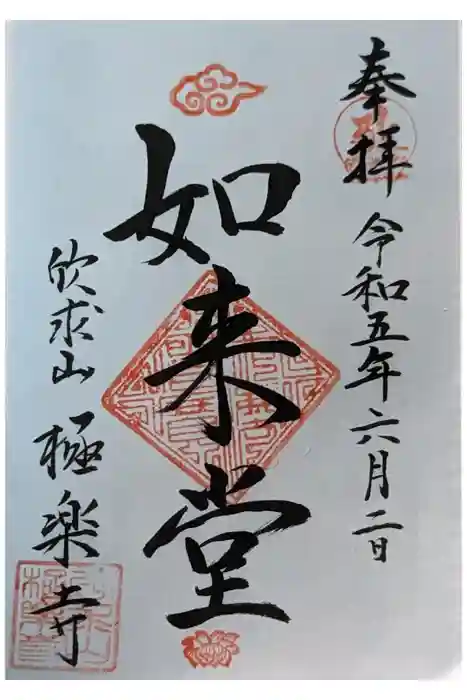 奉拝
令和五年六月二日
如来堂
欣求山 極楽寺